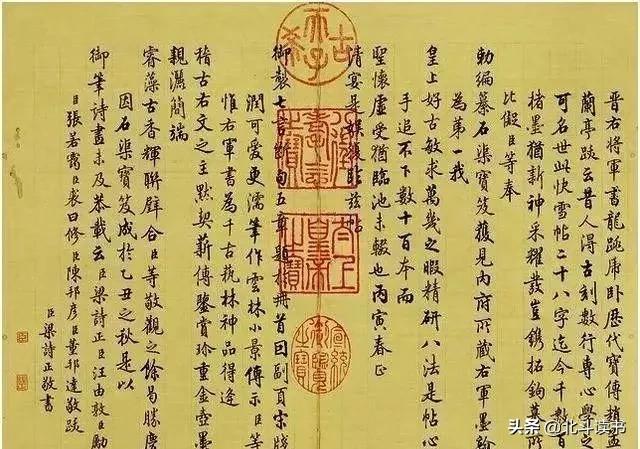 晉右將軍書龍跳虎卧歷代寶傳趙孟
蘭亭跋云昔人得古刻數行專心學之
可名世此快雪帖二十八字迄今千數百
楮墨猶新神采耀發豈鐫拓鉤摹所
比儗臣等奉
勅編纂石渠寶笈獲見內府所藏右軍墨翰
為第一我
皇上好古敏求萬幾之暇精研八法是帖心
手追不下數十百本而
聖懷虛受猶臨池未輟也丙寅春正
清宴是帖
御製七言斷句五章題於冊首因副頁宋牋
潤可愛更濡筆作雲林小景傳示臣等
惟右軍書為千古藝林神品得逢
稽古右文之主默契薪傳鑒賞珍重金壺墨
親灑簡端
睿藻古香輝聯璧合臣等敬觀之餘曷勝慶
因石渠寶笈成於乙丑之秋是以
御筆詩畫未及恭載云臣梁詩正臣汪由敦臣勵
臣張若靄臣裘曰修臣陳邦彥臣董邦達敬跋
臣梁詩正敬書
古希天子
壽
太上皇帝之寶
宣統御覽之寶
头条 @北斗读书